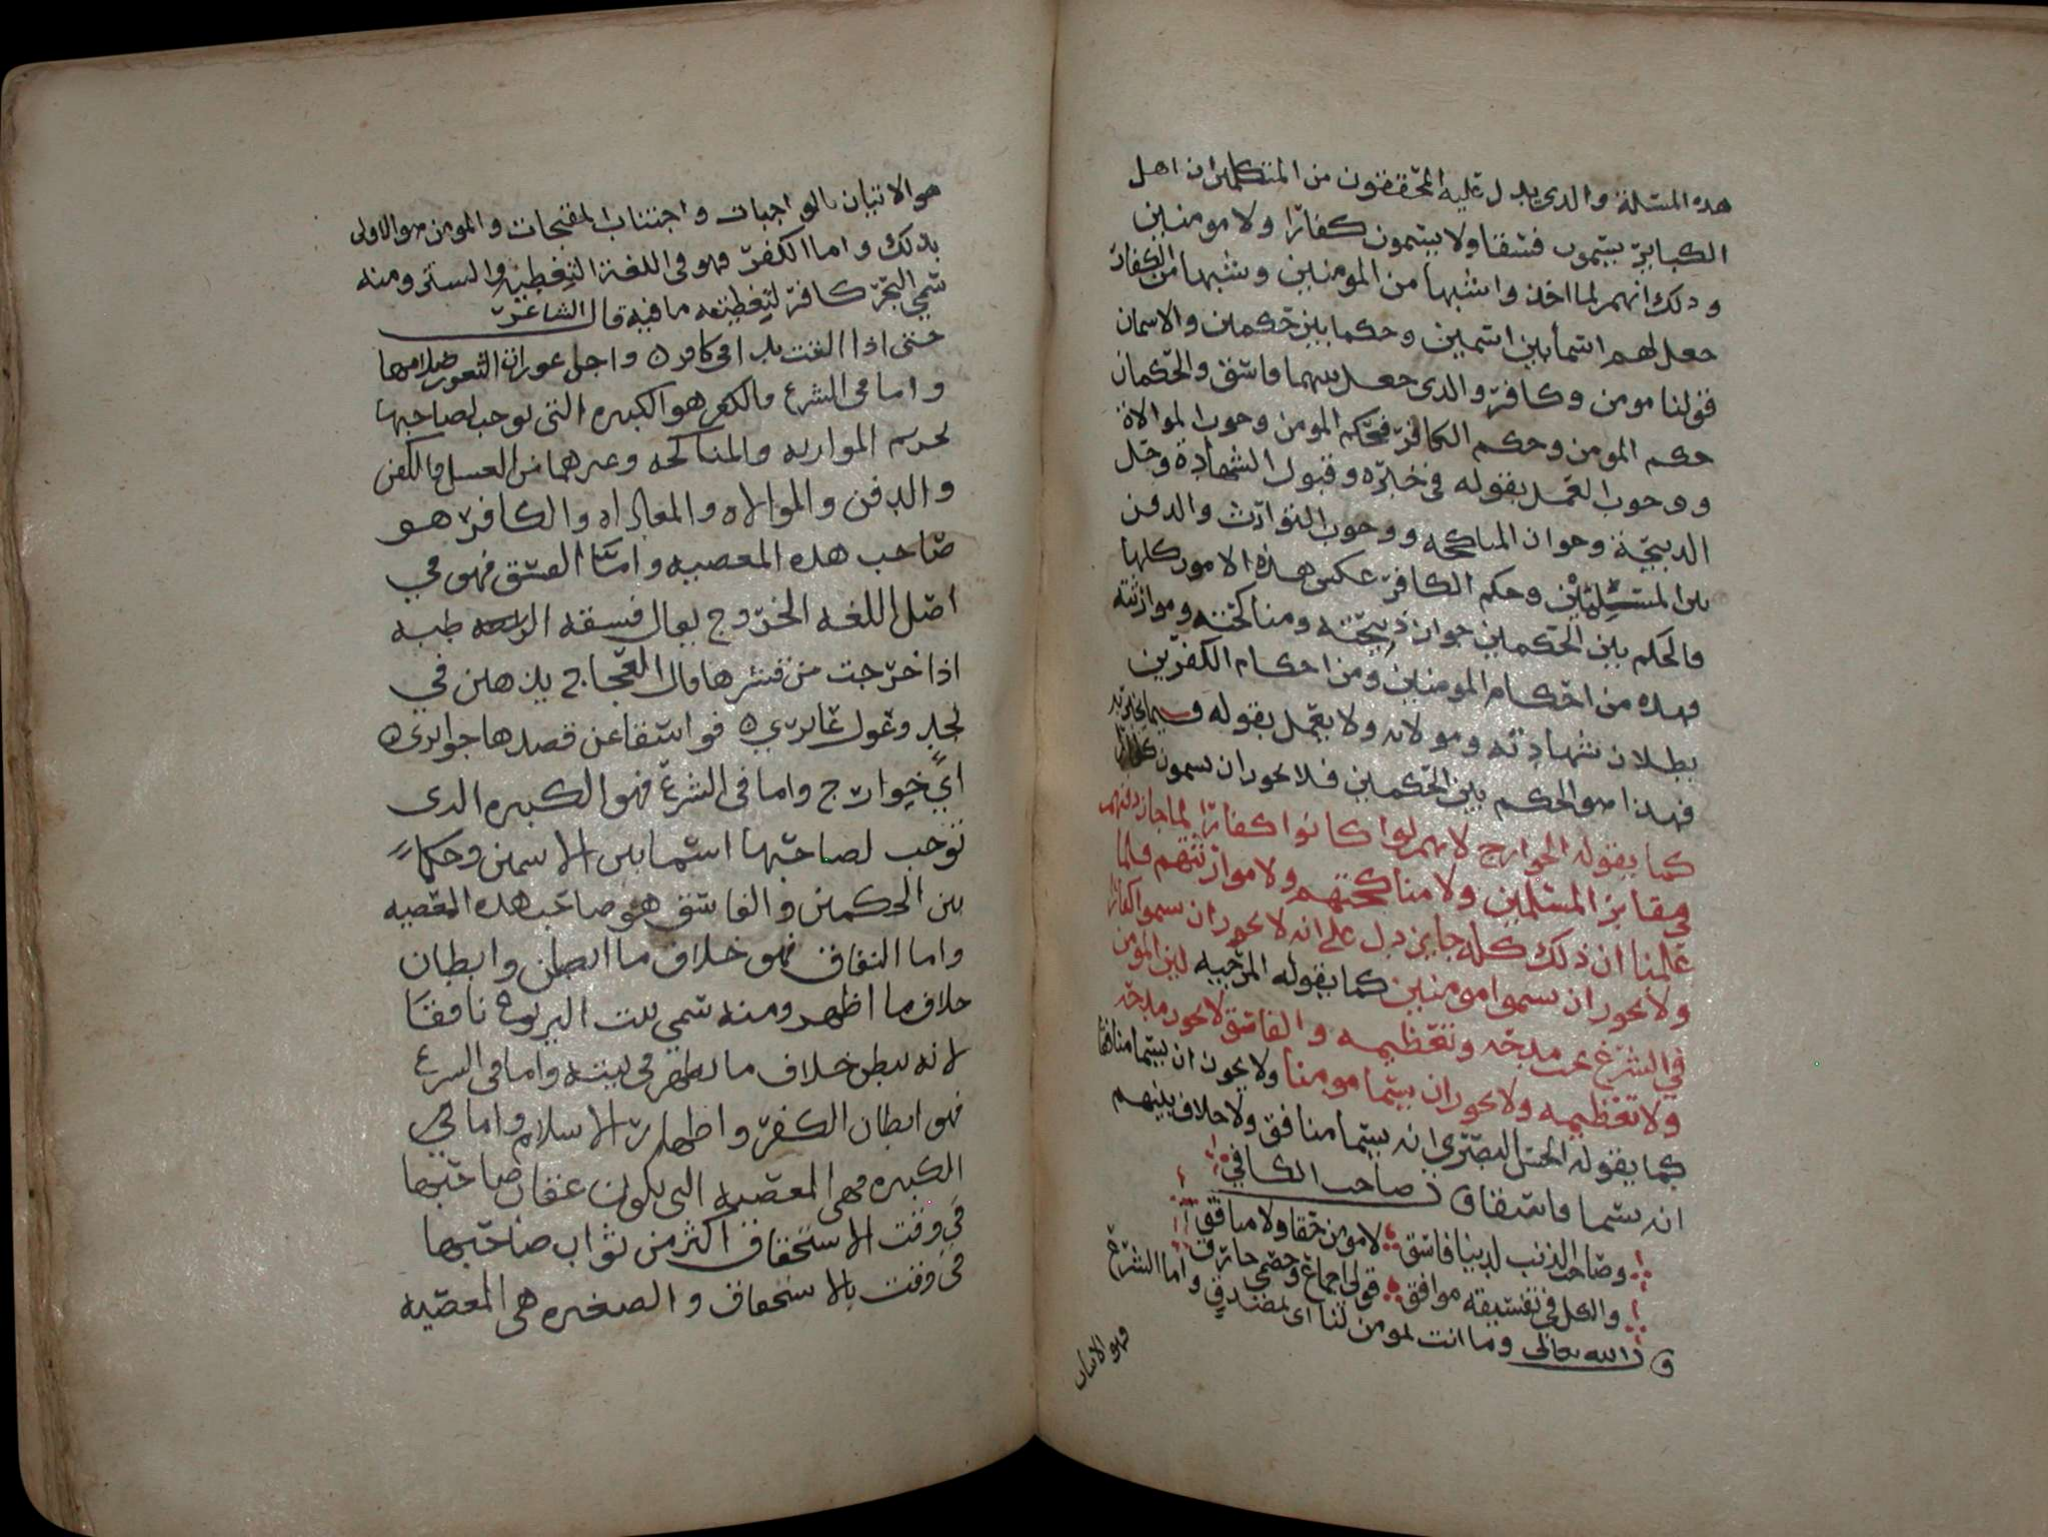 هذه المسئلة والذي يدل عليه المحققون من المتكلمين ان اهل
الكباير يسمون فسقا ولا يسمون كفارا ولا مومنين
وذلك انهم لما اخذوا شبها من المومنين وشبها من الكفار
جعل لهم اسما بين اسمين وحكما بين حكمين والاسمان
قولنا مومن وكافر والذي جعل بينهما فاسق والحكمان
حكم المومن وحكم الكافر فحكم المومن وجوب الموالاة
ووجوب العمل بقوله في خبره وقبول الشهادة وحل
الذبيحة وجواز المناكحه ووجوب التوارث والدفن
بين المسلمين وحكم الكافر عكس هذه الامور كلها
والحكم بين الحكمين جواز ذبيحته ومناكحته وموارثته
فهذه من احكام المومنين ومن احكام الكفرين
بطلان شهادته ومولاته ولا يعمل بقوله فيما يخبر به
فهذا هو الحكم بين الحكمين فلا يجوز ان يسمون كفارا
كما يقوله الخوارج لانهم لوا كانوا كفارا لما جاز دفنهم
في مقابر المسلمين ولا مناكحتهم ولا موارثتهم فلما
علمنا ان ذلك كله جايز دل على انه لا يجوز ان يسموا كفارا
ولا يجوز ان يسموا مومنين كما يقوله المرجيه لين المومن
في الشرع يجب مدحه وتعظيمه والفاسق لا يجوز مدحه
ولا تعظيمه ولا يجوز ان يسما مومنا ولا يجوز ان يسما منافقا
كما يقوله الحسن البصري انه يسما منافق ولا خلاف بينهم
انه يسما فاسقا قال صاحب الكافي
وصاحب الذنب لدينا فاسق لا مومن حقا ولا منافق
والكل في تفسيقه موافق قولي اجماع وخصمي خارق
قال الله تعالى وما انت لمومن لنا اي لمصدق واما الشرع
فهو الاتيان
هو الاتيان بالواجبات واجتناب المقبحات والمومن هو الاولى
بذلك واما الكفر فهو في اللغة التغطيه والستر ومنه
سمي البحر كافر لتغطيته ما فيه قال الشاعر
حتى اذا القت يدا في كافر واجن عورات الثغور ظلامها
واما في الشرع فالكفر هو الكبيره التي توجب لصاحبها
تحريم الموارثه والمناكحه وغيرهما من الغسل والكفن
والدفن والموالاه والمعاداه والكافر هو
صاحب هذه المعصيه واما الفسق فهو في
اصل اللغه الخروج يقال فسقه الرطبه
اذا خرجت من قشرها قال العجاج يذهبن في
نجد وغول غايري فواسقا عن قصدها جوايرى
اي خوارج واما في الشرع فهو الكبيره الذي
توجب لصاحبها اسما بين الاسمين وحكما
بين الحكمين والفاسق هو صاحب هذه المعصيه
واما النفاق فهو خلاف ما ابطن وابطان
خلاف ما اظهر ومنه سمي بيت اليربوع نافقا
لانه يبطن خلاف ما يظهر في بيته واما في الشرع
فهو ابطان الكفر واظهار الاسلام واما في
الكبيره فهي المعصيه التي يكون عقاب صاحبها
في وقت الاستحقاق اكثر من ثواب صاحبها
في وقت بالاستحقاق والصغيره هي المعصيه